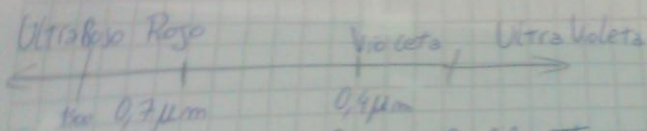 UltraRojo Rojo Violeta Ultra Violeta
0,7 μm 0,4 μm